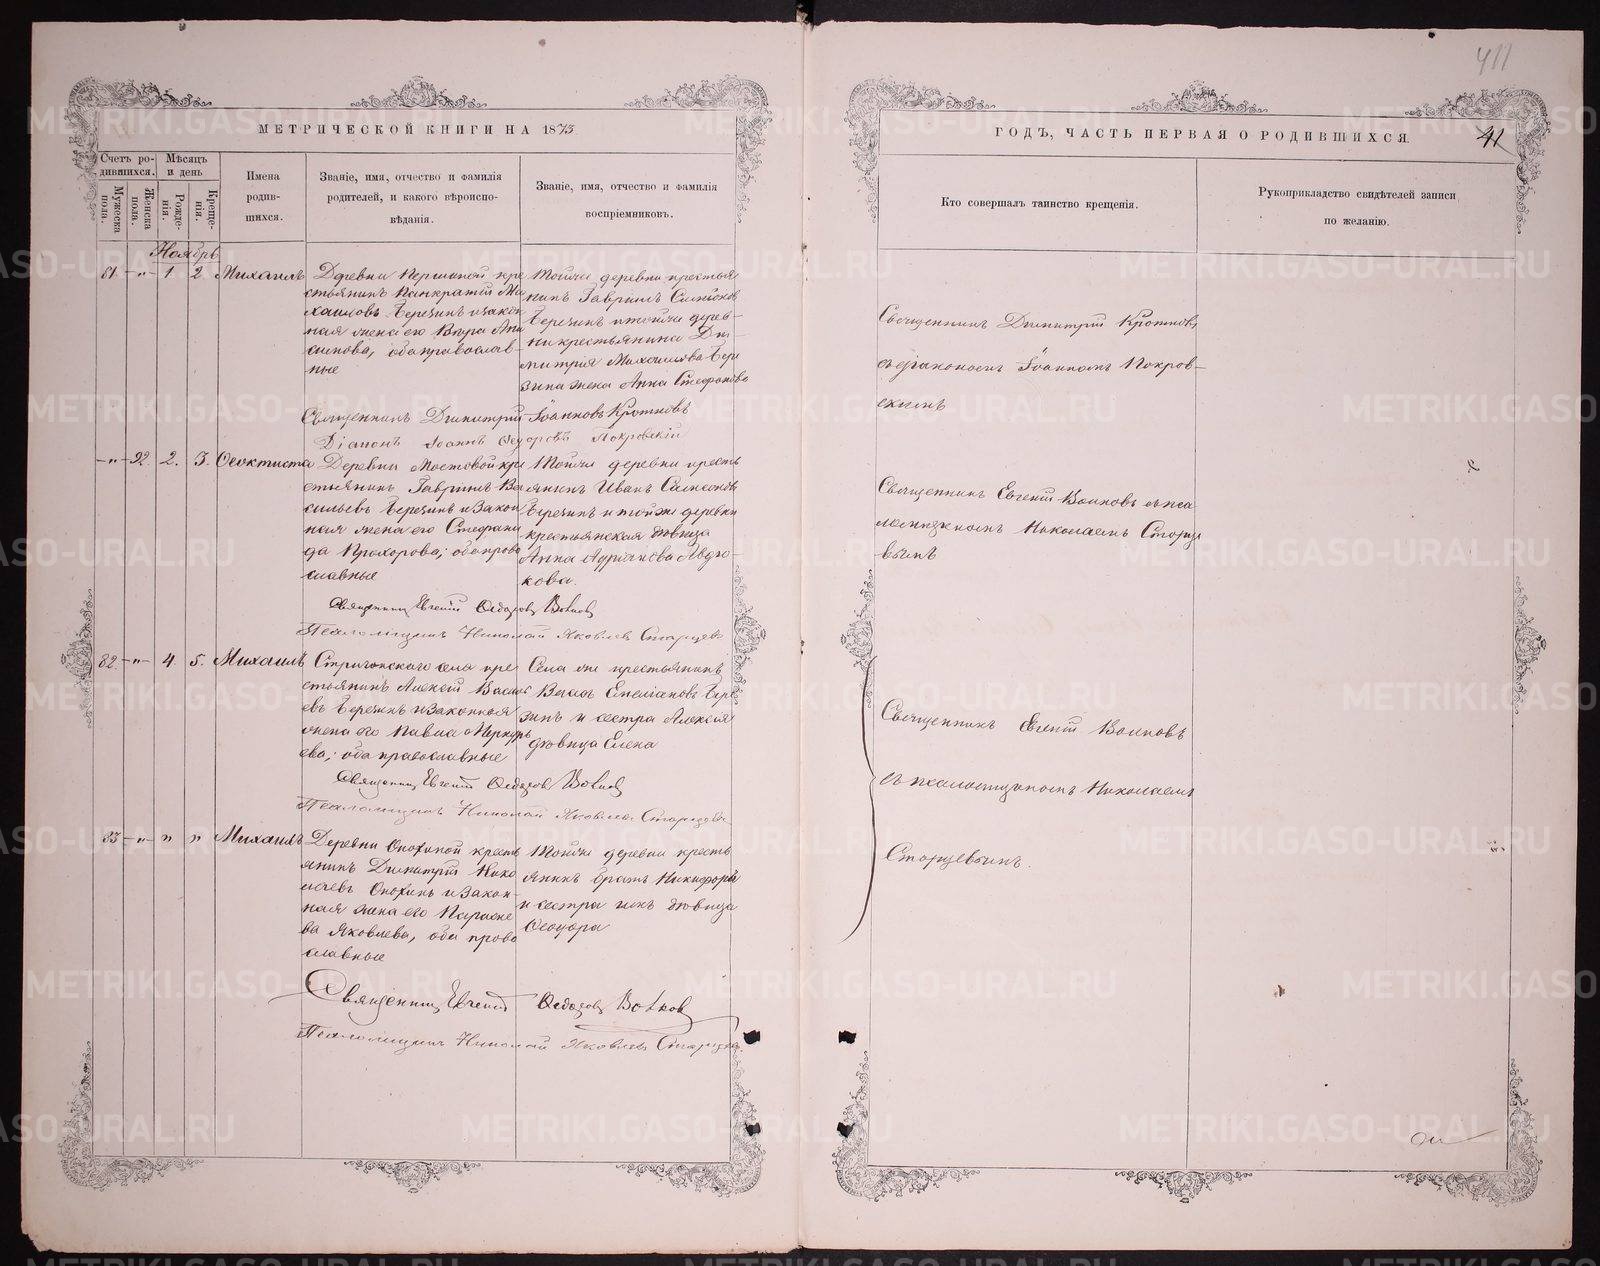 411
МЕТРИЧЕСКОЙ КНИГИ НА 1873
ГОДЪ, ЧАСТЬ ПЕРВАЯ О РОДИВШИХСЯ.
41
Счетъ ро-
дившихся.
Мужеска
пола.
Женска
пола.
Мѣсяцъ
и день
Рожде-
нія.
Креще-
нія.
Имена
родив-
шихся.
Званіе, имя, отчество и фамилія
родителей, и какого вѣроиспо-
вѣданія.
Званіе, имя, отчество и фамилія
воспріемниковъ.
Кто совершалъ таинство крещенія.
Рукоприкладство свидѣтелей записи
по желанію.
Ноябрь
81. -„- 1. 2. Михаилъ
Деревни Першиной кре
стьянинъ Панкратій Ми
хаиловъ Березинъ и закон
ная жена его Вѣра
обаправослав-
ные
Тойже деревни крестья
нинъ Гавріилъ Симеонов
Березинъ и тойже дерев-
ни крестьянина Ди
митрія Михаилова Бере
зина жена Анна Стефанова
Священникъ Димитрій Іоанновъ Кротковъ
Діаконъ Іоаннъ Ѳедоровъ Покровскій
Священникъ Димитрій Кротковъ
съ діакономъ Іоанномъ Покров-
скимъ
-„- 92. 2. 3. Ѳеоктиста
Деревни Мостовой кре
стьянинъ Гавріилъ Ва
сильевъ Березинъ и закон
ная жена его Стефани
да Прохорова; оба право
славные
Тойже деревни кресть
янинъ Иванъ Симеоновъ
Березинъ и тойже деревни
крестьянская дѣвица
Анна Адріанова Авдю-
кова.
Священникъ Евгеній Ѳедоровъ Воиковъ
Псаломщикъ Николай Яковлевъ Старцевъ
Священникъ Евгеній Воиковъ съ пса
ломщикомъ Николаемъ Старце
вымъ
82. -„- 4. 5. Михаилъ
села кре
стьянинъ Алексѣй Василь
евъ Березинъ и законная
жена его Павла Меркурь
ева; оба православные
Села же крестьянинъ
Власъ Емеліановъ Бере
зинъ и сестра Алексѣя
дѣвица Елена
Священникъ Евгеній Ѳедоровъ Воиковъ
Псаломщикъ Николай Яковлевъ Старцевъ
83. -„- „ „ Михаилъ
Деревни Опохиной кресть
янинъ Димитрій Нико
лаевъ Опохинъ и закон-
ная жена его Параске
ва Яковлева, оба право
славные
Тойже деревни кресть
янинъ братъ Никифоръ
и сестра ихъ дѣвица
Ѳеодора
Священникъ Евгеній Ѳедоровъ Воиковъ
Псаломщикъ Николай Яковлевъ Старцевъ
Священникъ Евгеній Воиковъ
съ псаломщикомъ Николаемъ
Старцевымъ.
METRIKI.GASO-URAL.RU